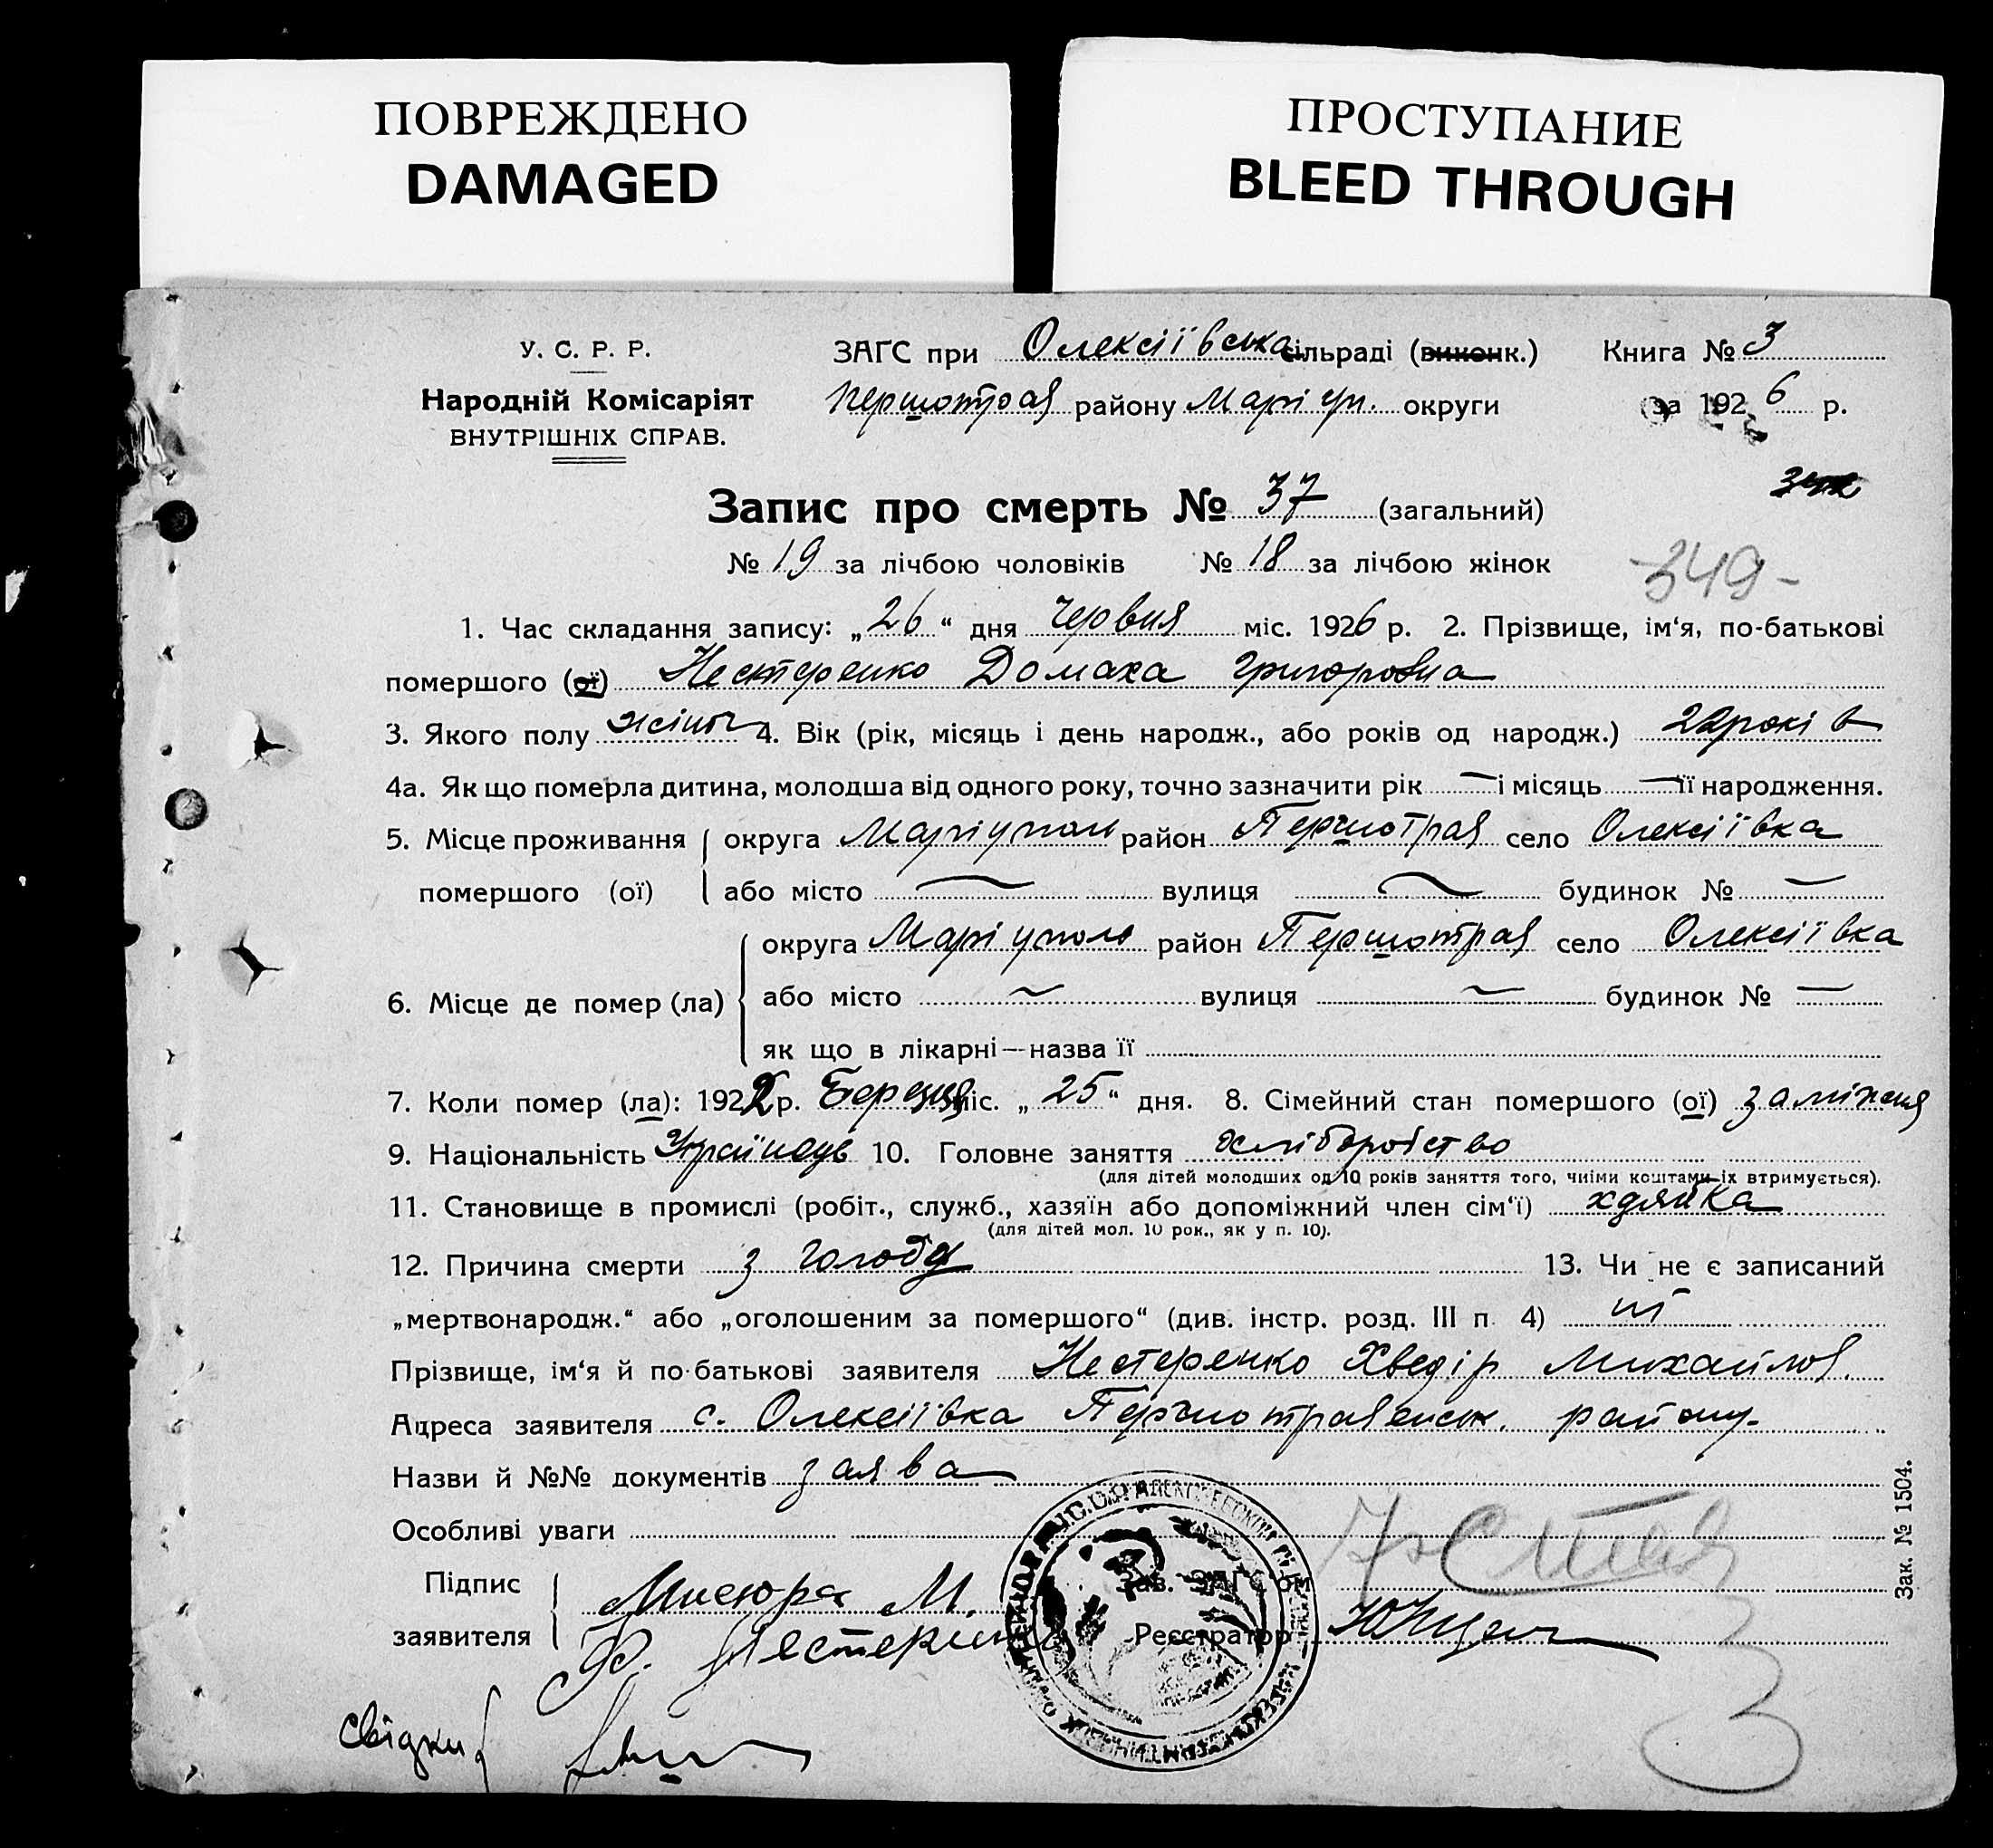 ПОВРЕЖДЕНО
DAMAGED
ПРОСТУПАНИЕ
BLEED THROUGH
У. С. Р. Р.
Народній Комісаріят
ВНУТРІШНІХ СПРАВ.
ЗАГС при Олексіївська сільраді (виконк.) Книга № 3
Першотрав району Маріуп. округи за 1926 р.
Запис про смерть № 37 (загальний)
№ 19 за лічбою чоловіків № 18 за лічбою жінок
-349-
1. Час складання запису: „26“ дня червня міс. 1926 р. 2. Прізвище, ім‘я, по-батькові
помершого (ої) Нестеренко Домаха Григоровна
3. Якого полу жіноч 4. Вік (рік, місяць і день народж., або років од народж.) 22 років
4а. Як що померла дитина, молодша від одного року, точно зазначити рік — і місяць — її народження.
5. Місце проживання округа Маріуполь район Першотрав село Олексіївка
помершого (ої) або місто — вулиця — будинок № —
округа Маріуполь район Першотрав село Олексіївка
6. Місце де помер (ла) або місто — вулиця — будинок № —
як що в лікарні—назва її
7. Коли помер (ла): 1922 р. Березня міс. „25“ дня. 8. Сімейний стан помершого (ої) заміжня
9. Національність 10. Головне заняття хліборобство
(для дітей молодших од 10 років заняття того, чиїми коштами їх втримується).
11. Становище в промислі (робіт., служб., хазяїн або допоміжний член сім‘ї)
(для дітей мол. 10 рок., як у п. 10).
12. Причина смерти з голоду 13. Чи не є записаний
„мертвонародж.“ або „оголошеним за помершого“ (див. інстр. розд. III п. 4) ні
Прізвище, ім‘я й по-батькові заявителя Нестеренко Хведір Михайлов.
Адреса заявителя с. Олексіївка Першотравенськ. району
Назви й №№ документів заява
Особливі уваги
Підпис Мисюра М. Зав. ЗАГС‘ом
заявителя Ф. Нестеренко Реєстратор
свідки
3
Зак. № 1504.